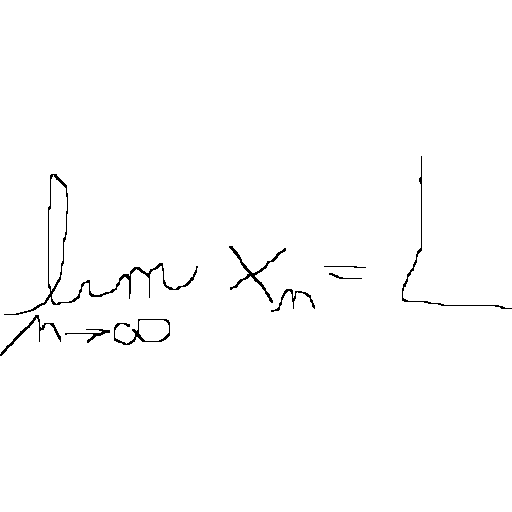 \lim_{n \to \infty} x_n = L